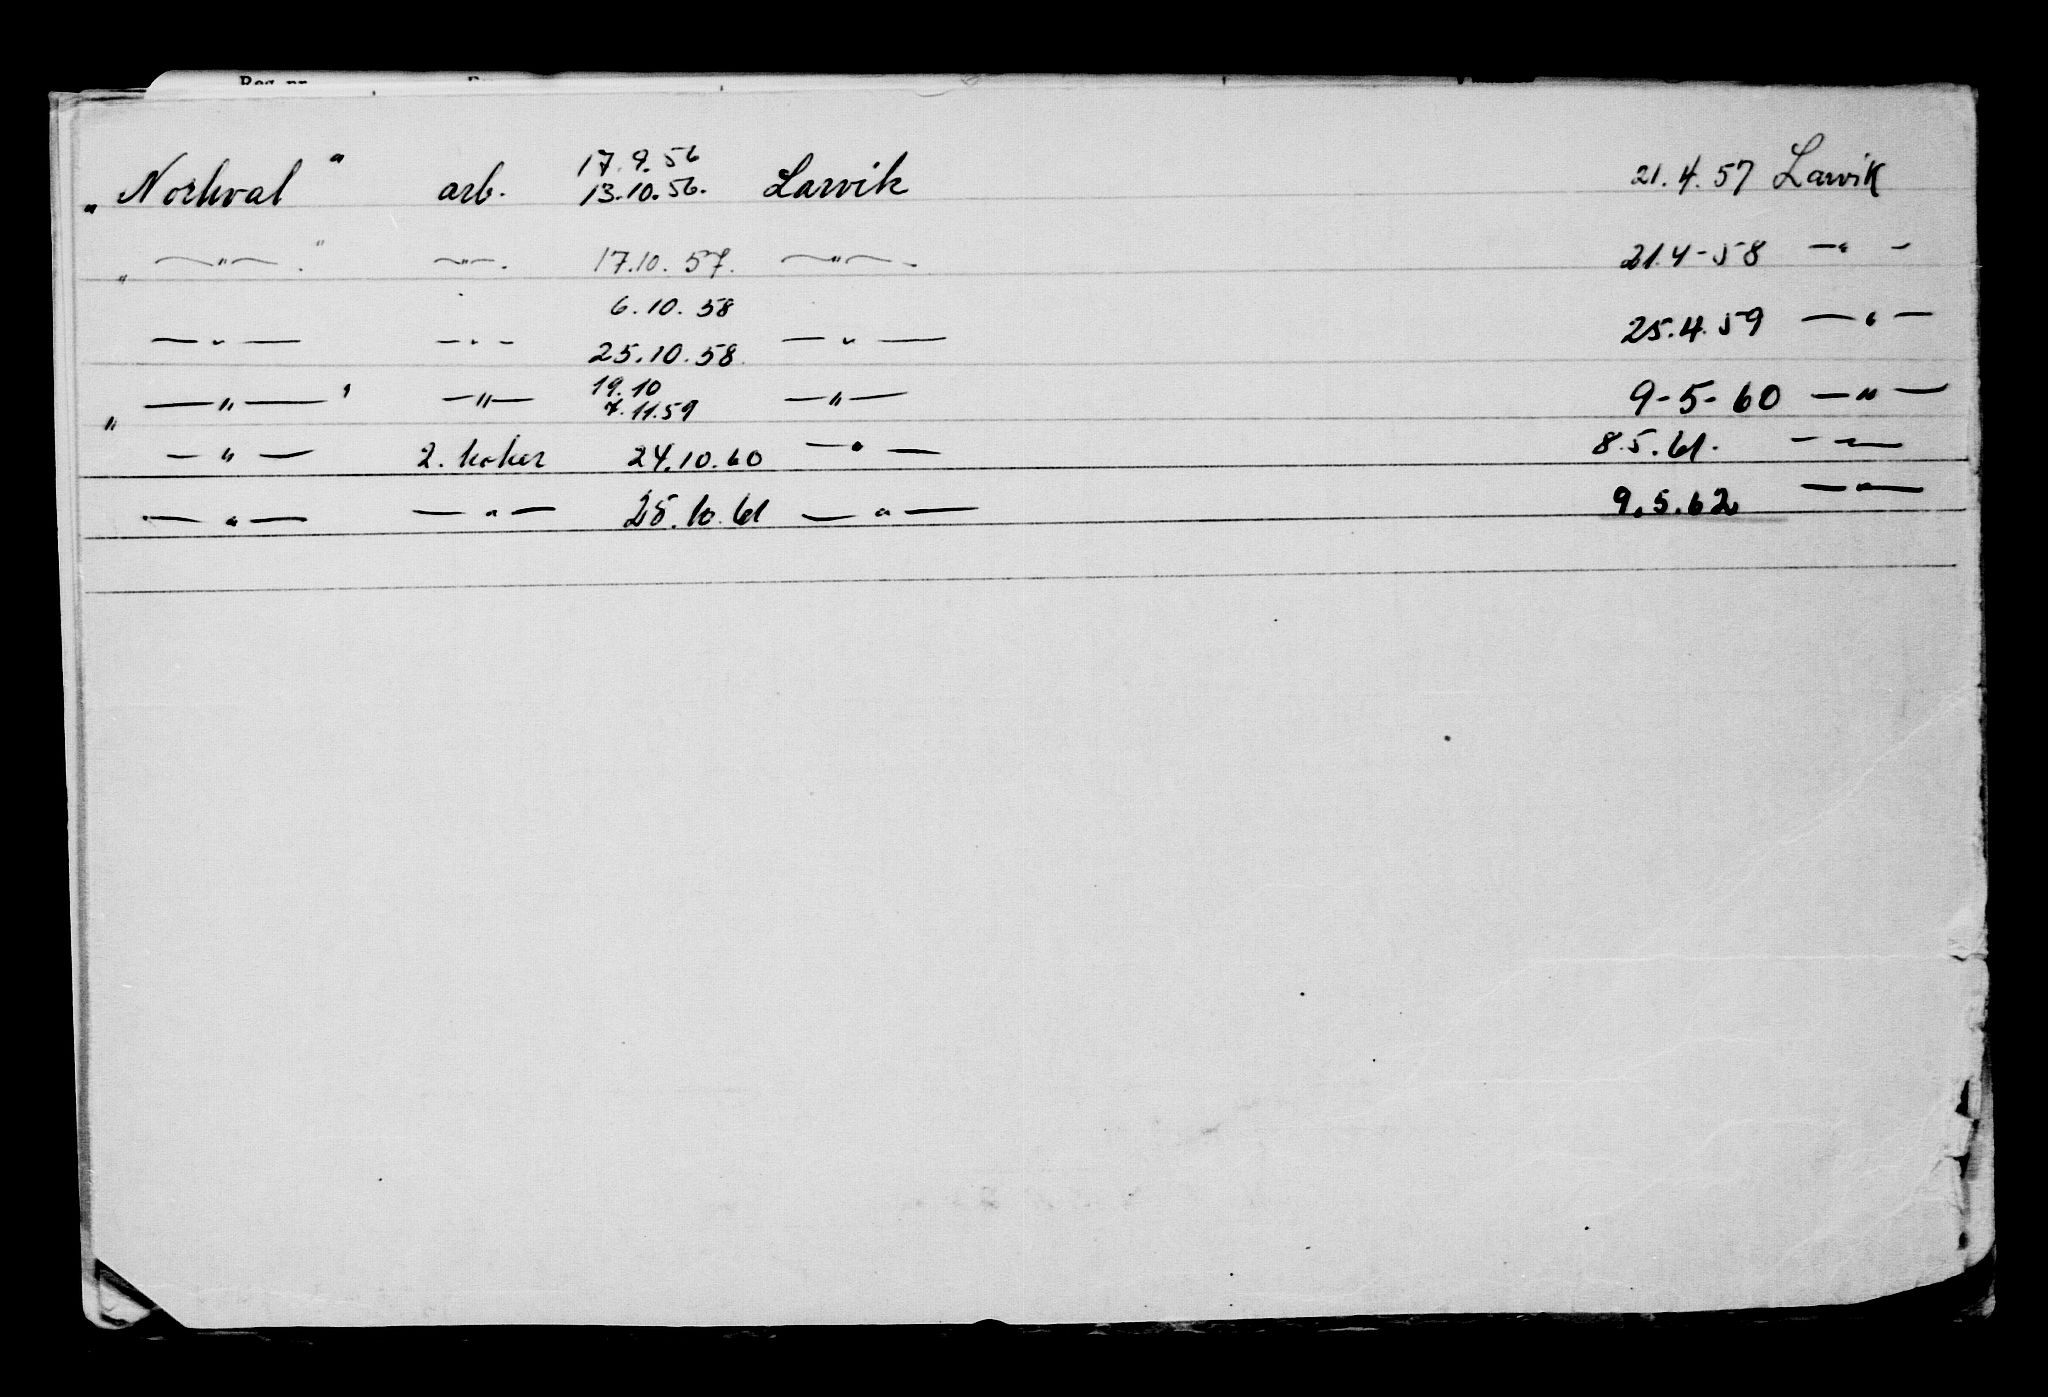 Reg. nr.
17.9.56
„Norhval" arb. 13.10.56. Larvik 21.4.57 Larvik
„—"—." —"—. 17.10.57. —"—. 21.4-58 —"—
6.10.58
—"— —"— 25.10.58 —"— 25.4.59 —"—
19.10
„—"—" —"— 7.11.59 —"— 9-5-60 —"—
—"— 2. koker 24.10.60 —"— 8.5.61. —"—
—"— —"— 25.10.61 —"— 9.5.62 —"—